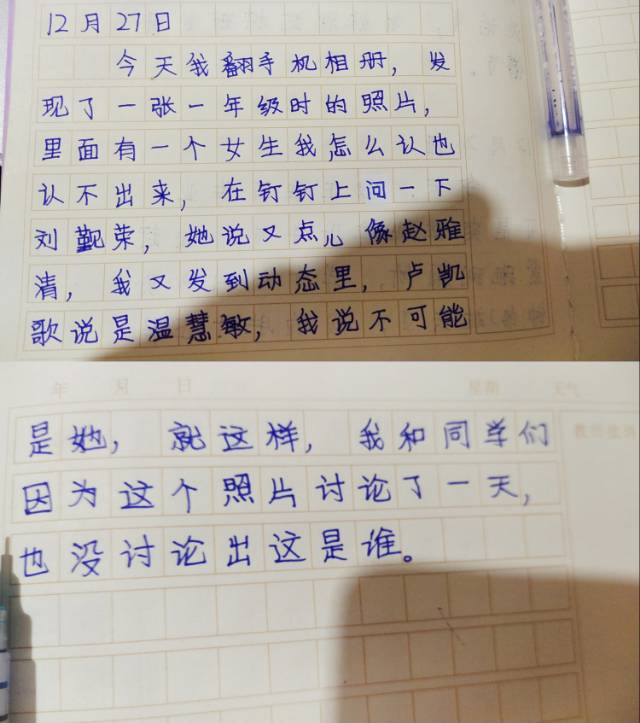 12月27日
今天我翻手机相册，发
现了一张一年级时的照片，
里面有一个女生我怎么认也
认不出来，在钉钉上问一下
刘勤荣，她说又点儿像赵雅
清，我又发到动态里，卢凯
歌说是温慧敏，我说不可能
年 月 日 星期 天气
是她，就这样，我和同学们
因为这个照片讨论了一天，
也没讨论出这是谁。